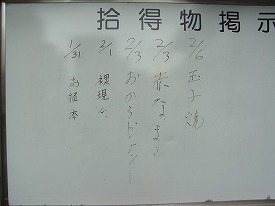 拾得物掲示
2/6 玉子焼
2/3 赤なまこ
2/3 おからドーナツ
2/1 裸現人
1/31 お経本